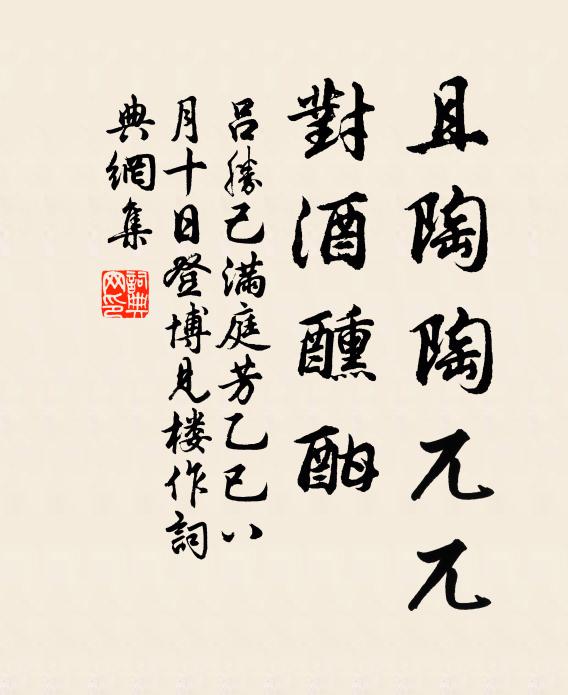 且陶陶兀兀
對酒醺酣
呂勝己滿庭芳乙巳八
月十日登博見楼作詞
典網集
詞典
网印